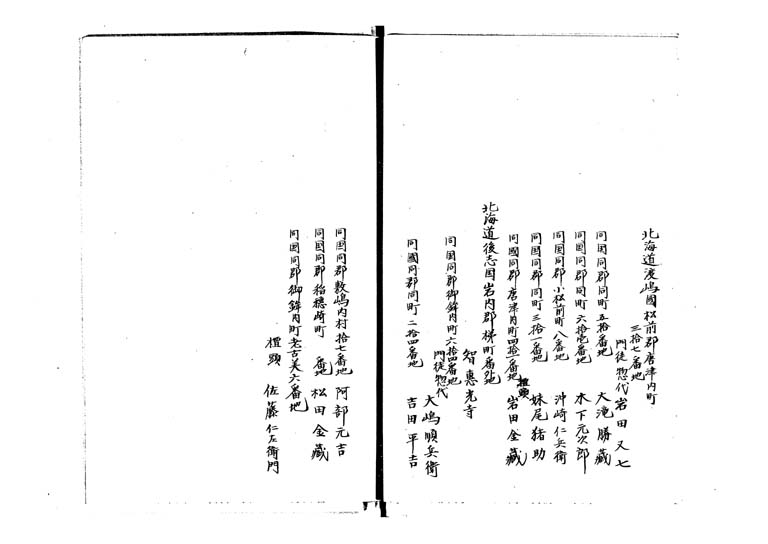 北海道渡嶋國松前郡唐津内町
三拾七番地
門徒惣代 岩田又七
同国同郡同町五拾番地 大滝勝藏
同国同郡同町六拾壱番地 木下元次郎
同国同郡小松前町八番地 沖崎仁兵衛
同国同郡同町三拾一番地 妹尾猪助
同國同郡唐津内町四拾二番地 檀頭 岩田金藏
北海道後志国岩内郡梯町番外地
智惠光寺
同国同郡御鉾内町六拾四番地
門徒惣代 大嶋順兵衛
同國同郡同町二拾四番地 吉田平吉
同国同郡敷嶋内村拾七番地 阿部元吉
同国同郡稻穗崎町 番地 松田金藏
同国同郡御鉾内町老古美六番地
檀頭 佐藤仁左衛門